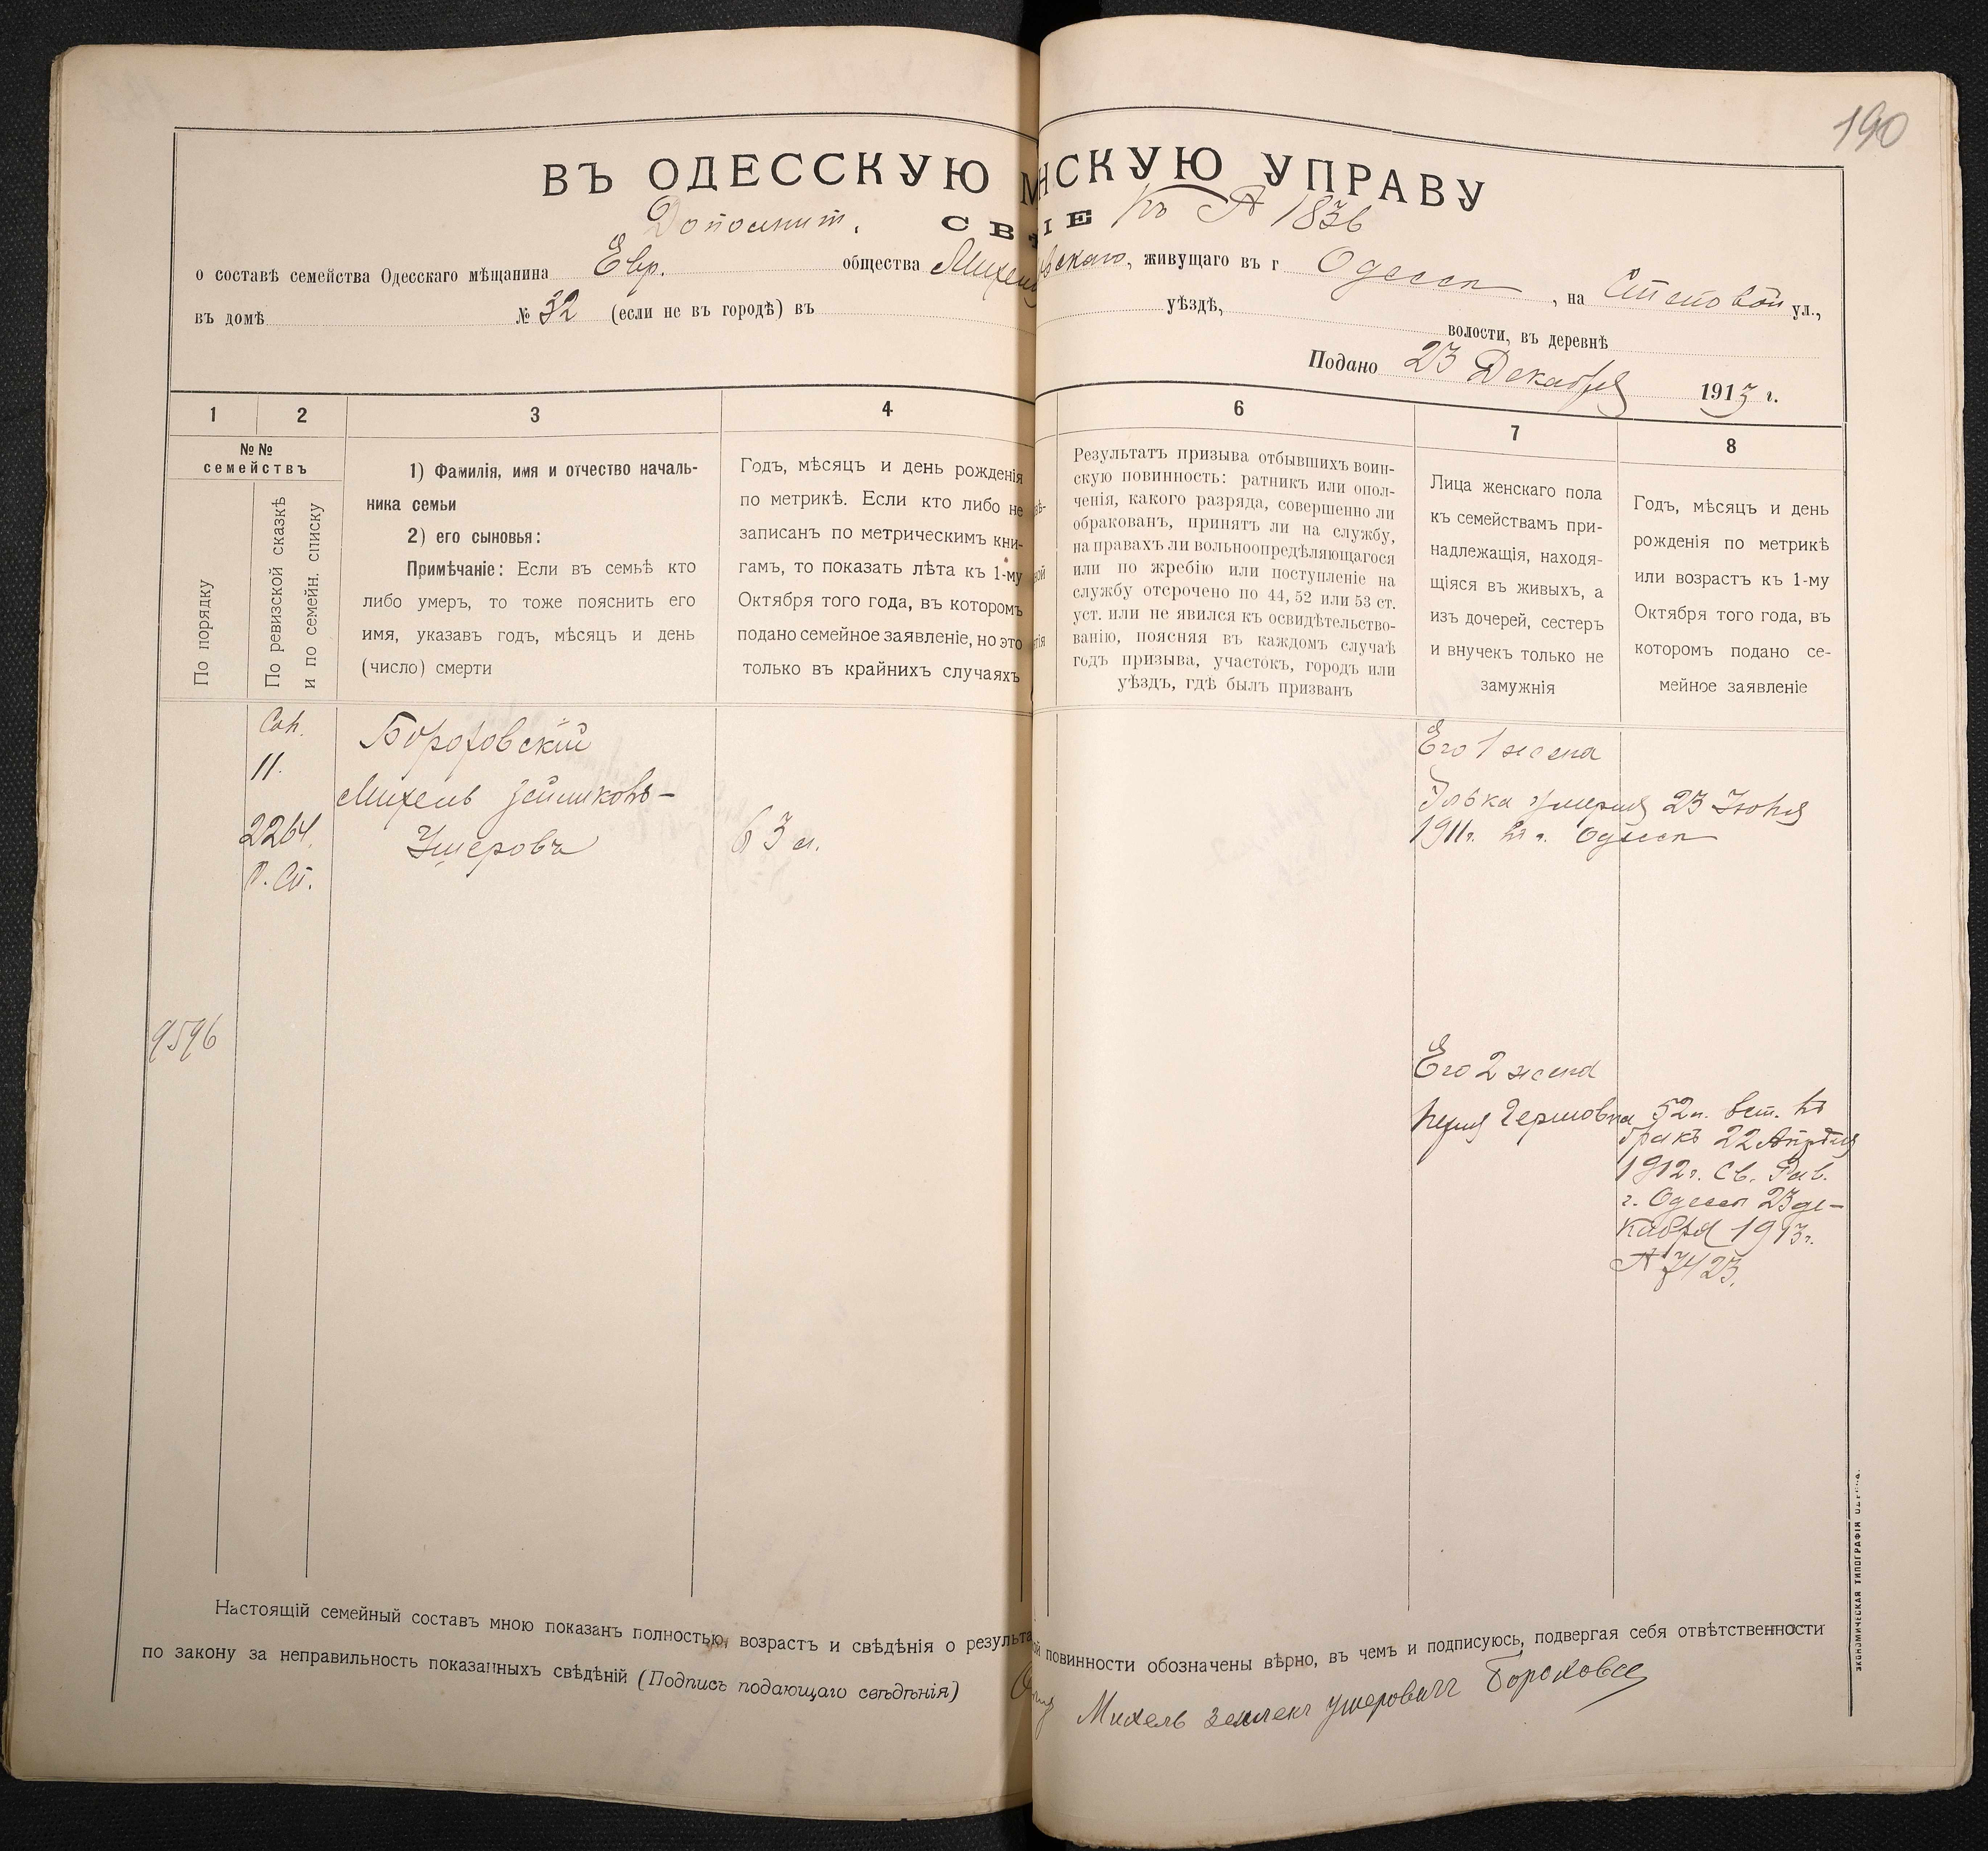 190
ВЪ ОДЕССКУЮ М НСКУЮ УПРАВУ
Дополнит. СВ ІЕ къ № 1836
о составѣ семейства Одесскаго мѣщанина Евр. общества живущаго въ г Одессѣ, на Степовой ул.,
въ домѣ № 32 (если не въ городѣ) въ уѣздѣ, волости, въ деревнѣ
Подано 23 Декабря 1913 г.
1 2 3 4 6 7 8
№№
семействъ
По порядку
По ревизской сказкѣ
и по семейн. списку
1) Фамилія, имя и отчество началь-
ника семьи
2) его сыновья:
Примѣчаніе: Если въ семьѣ кто
либо умеръ, то тоже пояснить его
имя, указавъ годъ, мѣсяцъ и день
(число) смерти
Годъ, мѣсяцъ и день рожденія
по метрикѣ. Если кто либо не
записанъ по метрическимъ кни-
гамъ, то показать лѣта къ 1-му
Октября того года, въ которомъ
подано семейное заявленіе, но это
только въ крайнихъ случаяхъ
Результатъ призыва отбывшихъ воин-
скую повинность: ратникъ или опол-
ченія, какого разряда, совершенно ли
обракованъ, принятъ ли на службу,
на правахъ ли вольноопредѣляющагося
или по жребію или поступленіе на
службу отсрочено по 44, 52 или 53 ст.
уст. или не явился къ освидѣтельство-
ванію, поясняя въ каждомъ случаѣ
годъ призыва, участокъ, городъ или
уѣздъ, гдѣ былъ призванъ
Лица женскаго пола
къ семействамъ при-
надлежащія, находя-
щіяся въ живыхъ, а
изъ дочерей, сестеръ
и внучекъ только не
замужнія
Годъ, мѣсяцъ и день
рожденія по метрикѣ
или возрастъ къ 1-му
Октября того года, въ
которомъ подано се-
мейное заявленіе
11.
2264
Бороховскій
Михель Зейликовъ-
Ушеровъ
63 л.
Его 1 жена
Элька умерла 23 Іюня
1911г. въ г. Одессѣ
9596
Его 2 жена
Гершовна 52л. вст. въ
бракъ 22 Апрѣля
1912г. Св. Рав.
г. Одессы 23 де-
кабря 1913г.
№ 7423.
Настоящій семейный составъ мною показанъ полностью, возрастъ и свѣдѣнія о результа ой повинности обозначены вѣрно, въ чемъ и подписуюсь, подвергая себя отвѣтственности
по закону за неправильность показанныхъ свѣдѣній (Подпись подающаго свѣдѣнія) Михель Зейлекъ Ушеровичъ
ЭКОНОМИЧЕСКАЯ ТИПОГРАФІЯ